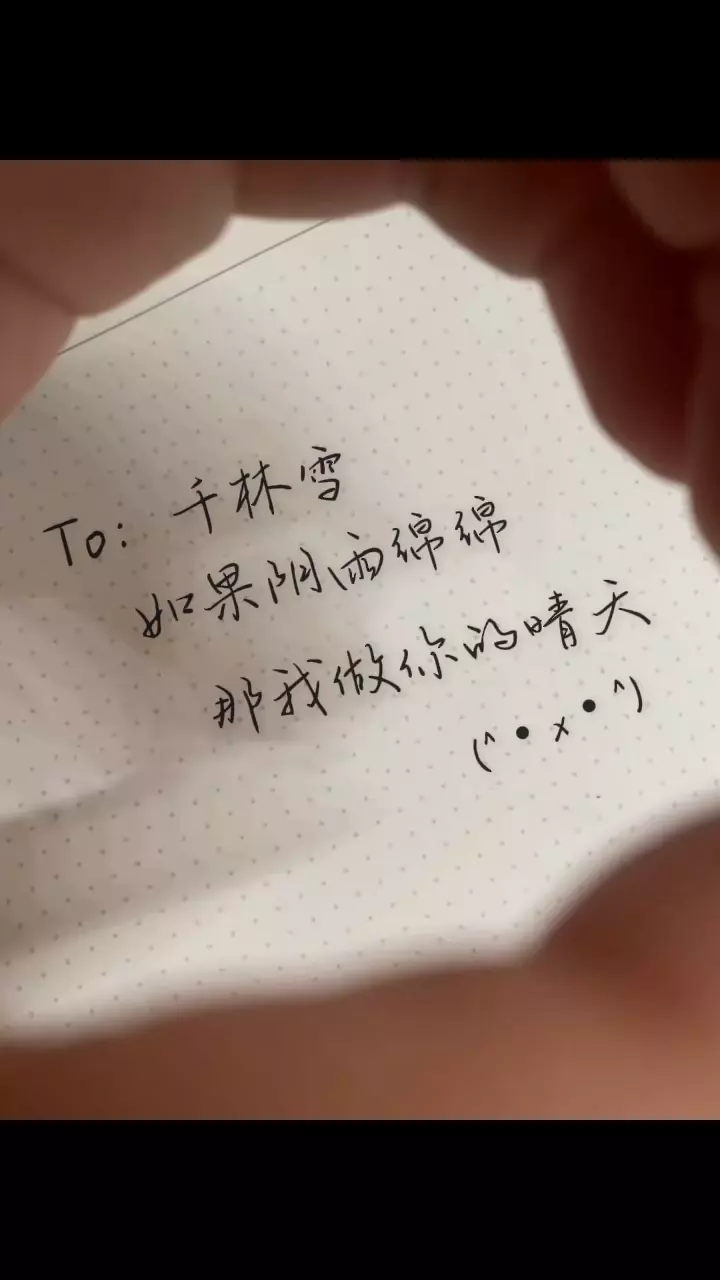 To: 千林雪
如果阴雨绵绵
那我做你的晴天
(^•x•^)